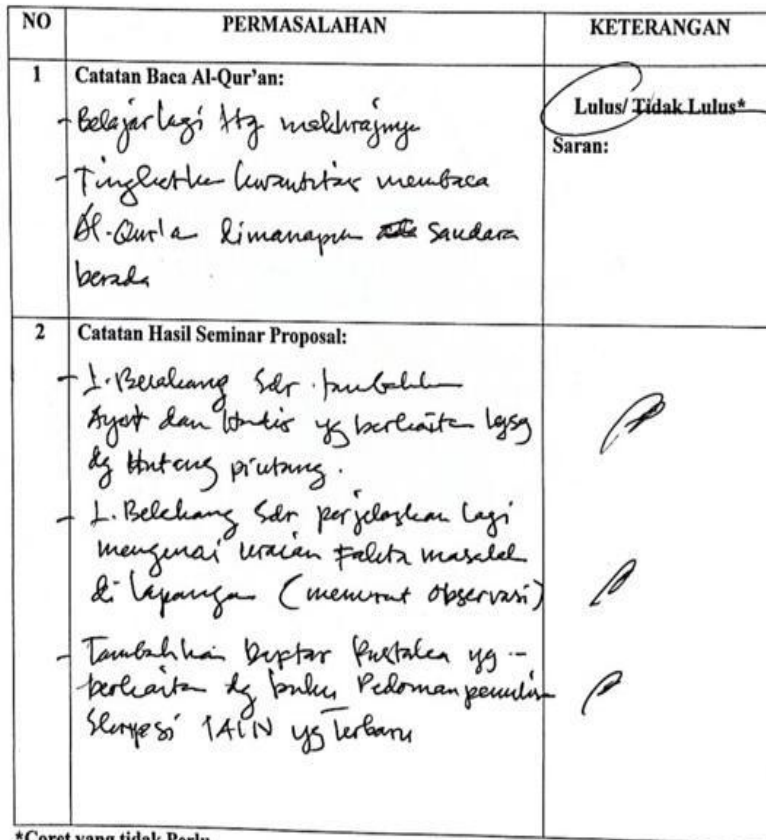 NO PERMASALAHAN KETERANGAN
1 Catatan Baca Al-Qur'an:
- Belajar lagi ttg makhrajnya
- Tingkatkan kwantitas membaca
Al-Qur'a dimanapun saudara
berada
Lulus/ Tidak Lulus*
Saran:
2 Catatan Hasil Seminar Proposal:
- L. Belakang Sdr. tambahkan
Ayat dan Hadis yg berkaitan lgsg
dg Hutang piutang.
- L. Belakang Sdr perjelaskan lagi
mengenai uraian Fakta masalah
di lapangan (menurut observasi)
- Tambahkan Daftar Pustaka yg
berkaitan dg buku Pedoman penulisan
Skripsi IAIN yg Terbaru
*Coret yang tidak Perlu